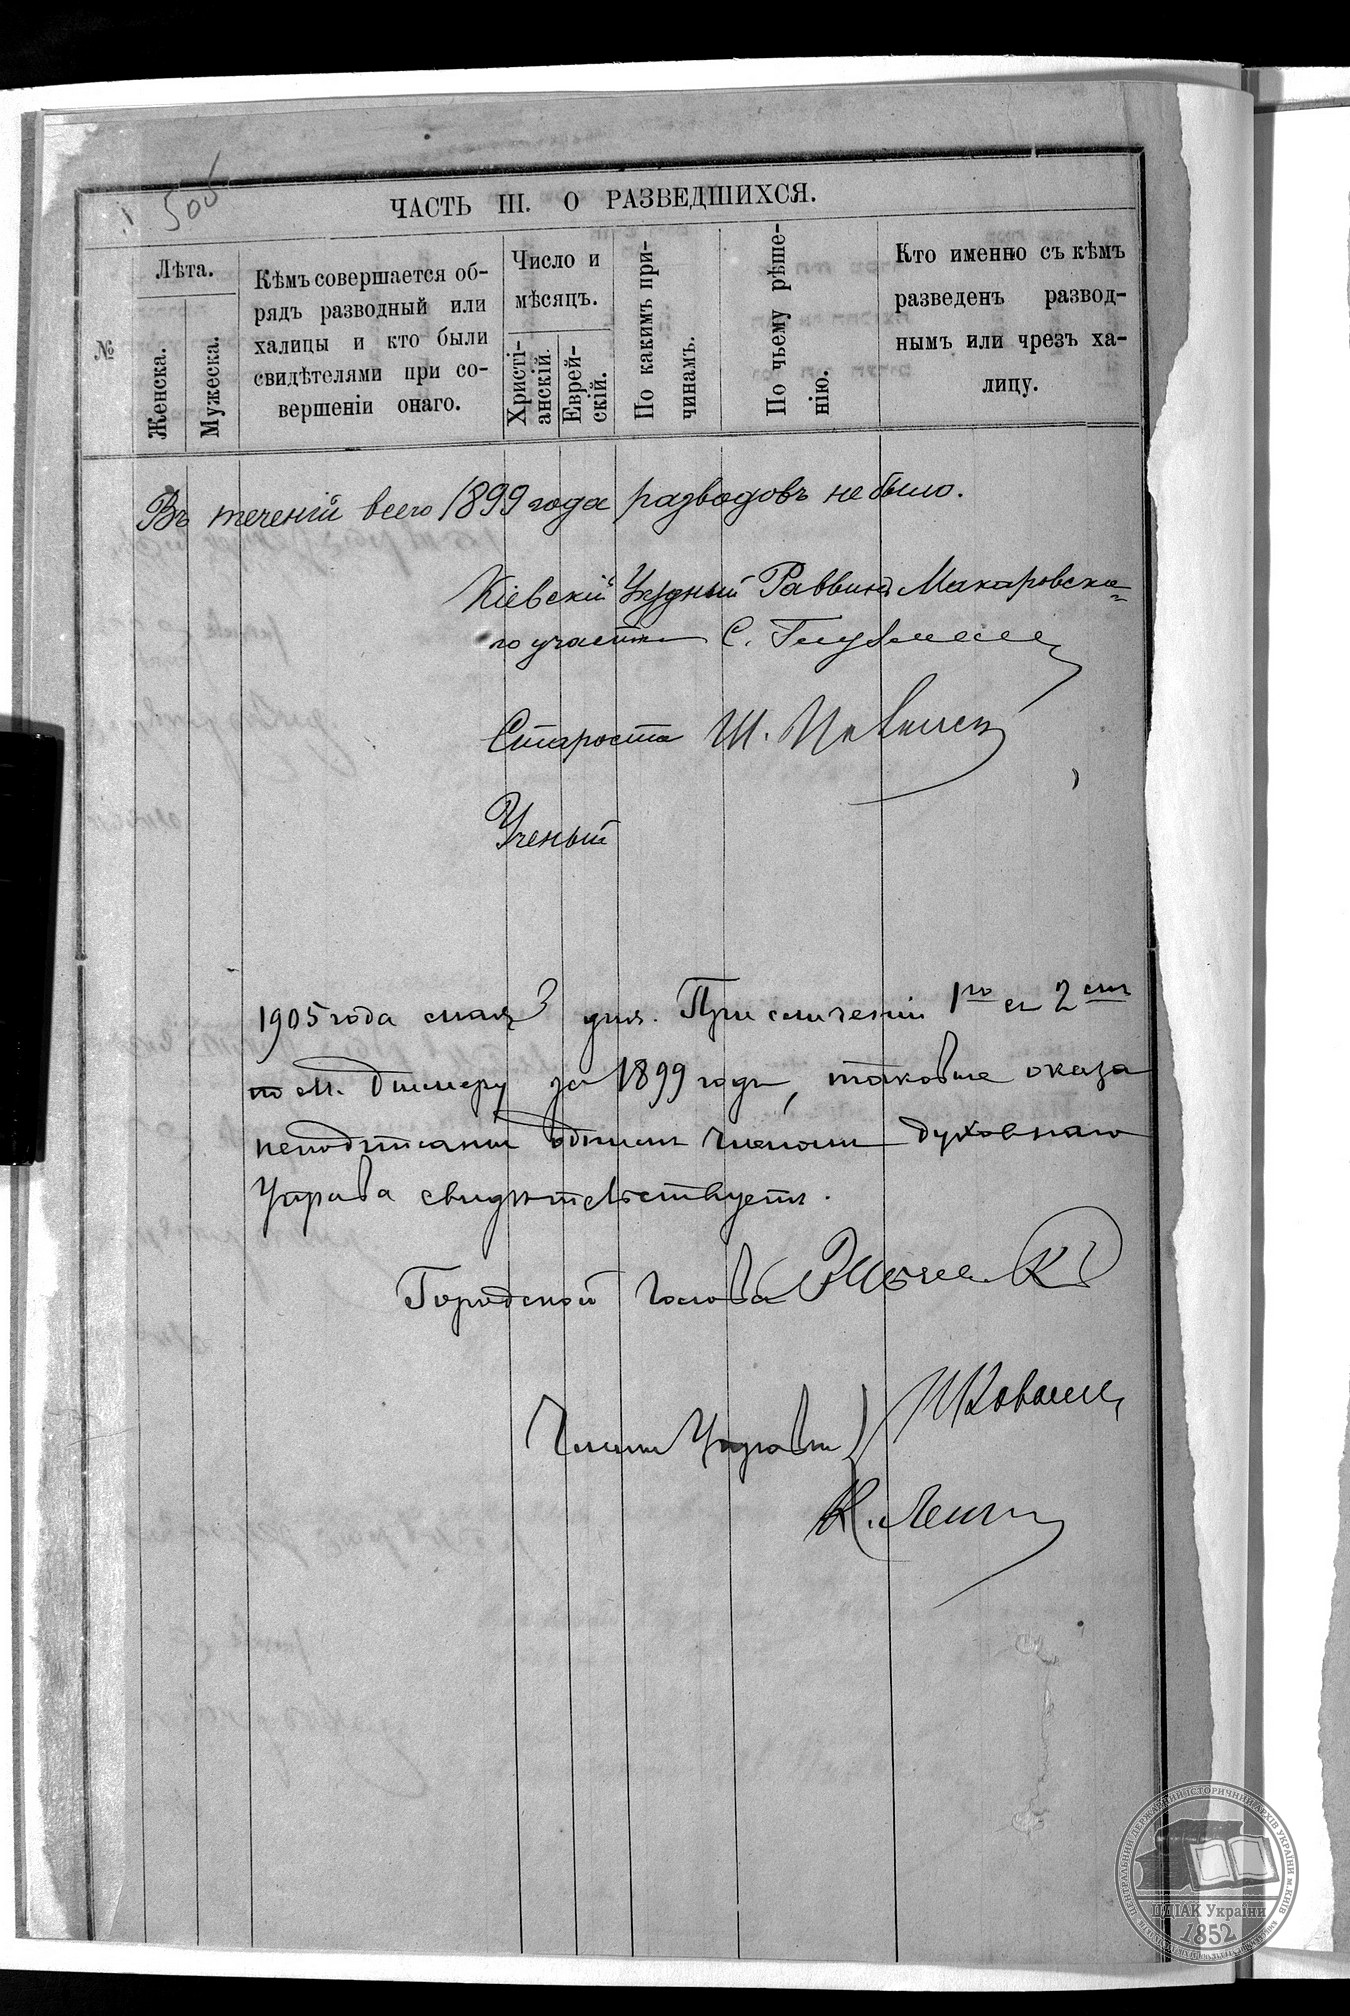 505
ЧАСТЬ III. О РАЗВЕДШИХСЯ.
№
Лѣта.
Женска.
Мужеска.
Кѣмъ совершается об-
рядъ разводный или
халицы и кто были
свидѣтелями при со-
вершеніи онаго.
Число и
мѣсяцъ.
Христі-
анскій.
Еврей-
скій.
По какимъ при-
чинамъ.
По чьему рѣше-
нію.
Кто именно съ кѣмъ
разведенъ развод-
нымъ или чрезъ ха-
лицу.
Въ теченіи всего 1899 года разводовъ не было.
Кіевскій Уѣздный Раввинъ Макаровска-
го участка С.
Староста Ш.
Ученый
1905 года мая 3 дня. При сличеніи 1го съ 2мъ
по м. Дымеру за 1899 годъ, таковые оказа
неподписаны однимъ членомъ духовнаго
Управа свидѣтельствуетъ.
Городской Голова
Члены Управы
К.
ЦЕНТРАЛЬНИЙ ДЕРЖАВНИЙ ІСТОРИЧНИЙ АРХІВ УКРАЇНИ М.КИЇВ
ЦДІАК України
1852